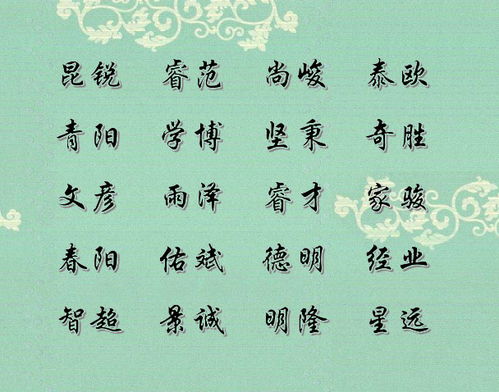 昆锐 睿范 尚峻 泰欧
青阳 学博 坚秉 奇胜
文彦 雨泽 睿才 家骏
春阳 佑斌 德明 经业
智超 景诚 明隆 星远